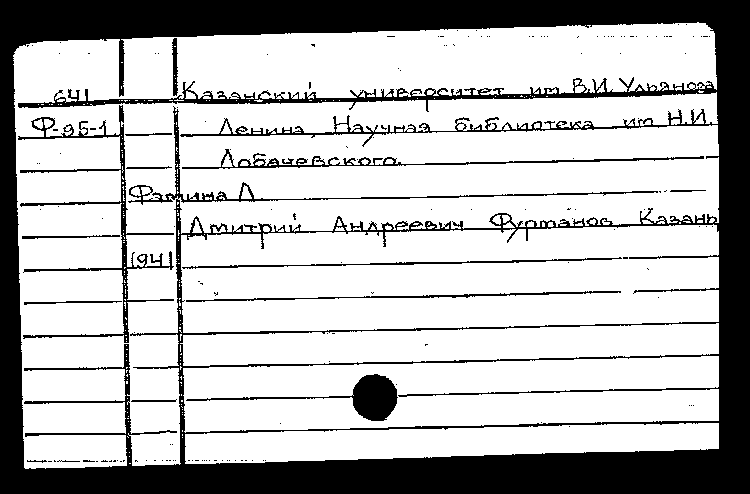 641 Казанский университет им В.И. Ульянова
Ф-95-1 Ленина, Научная библиотека им Н.И.
Лобачевского.
Л.
Дмитрий Андреевич Фурманов Казань
1941